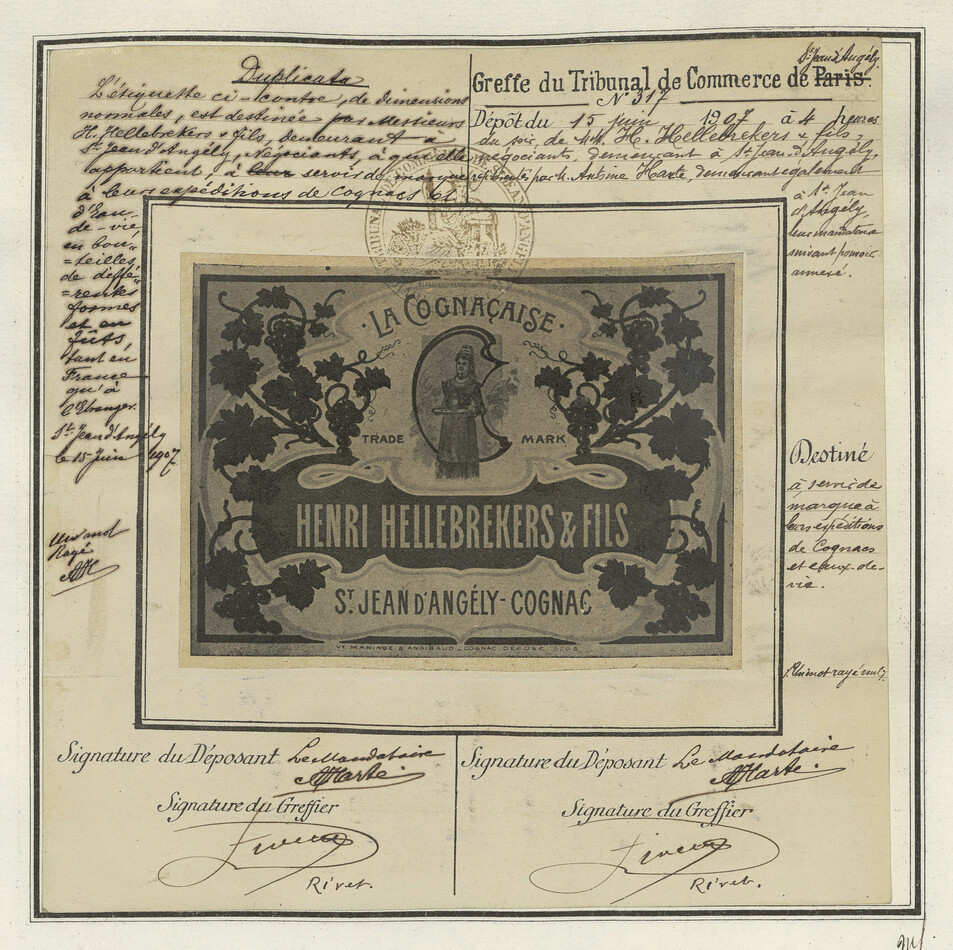 Duplicata
L'étiquette ci-contre, de dimensions
normales, est destinée par Messieurs
H. Hellebrekers & fils, demeurant à
St Jean d'Angély, négociants, à qui elle
appartient, à leur servir de marque
à leurs expéditions de Cognacs et
d'Eau-
de-vie,
en bou-
=teilles,
de diffé-
=rentes
formes
et en
fûts,
tant en
France
qu'à
l'Etranger.
St Jean d'Angély
le 15 Juin 1907
Un mot
Rayé
AH
St Jean d'Angély
Greffe du Tribunal de Commerce de Paris.
N° 317
Dépôt du 15 juin 1907 à 4 heures
du soir, de MM. H. Hellebrekers & fils,
négociants, demeurant à St Jean-d'Angély,
représentés par M. Antoine Harte, demeurant également
à St Jean
d'Angély,
leur mandataire
suivant pouvoir
annexé.
TRIBUNAL DE COMMERCE DE ST JEAN D'ANGÉLY
LA COGNAÇAISE
TRADE MARK
HENRI HELLEBREKERS & FILS
ST. JEAN D'ANGÉLY-COGNAC
VE MANIAGE & ANGIBAUD _ COGNAC. DEPOSE
Destiné
à servir de
marque à
leurs expéditions
de Cognacs
et eaux-de-
vie.
Un mot rayé nul
Signature du Déposant Le Mandataire
AHarte.
Signature du Greffier
Rivet.
Signature du Déposant Le Mandataire
AHarte.
Signature du Greffier
Rivet.